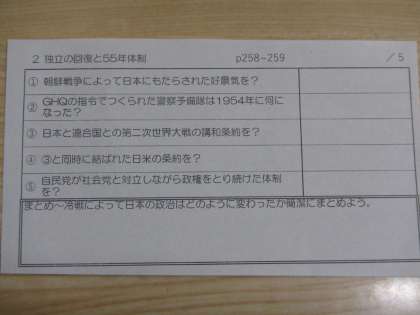 2 独立の回復と55年体制 p258-259 /5
① 朝鮮戦争によって日本にもたらされた好景気を?
② GHQの指令でつくられた警察予備隊は1954年に何に
なった?
③ 日本と連合国との第二次世界大戦の講和条約を?
④ ③と同時に結ばれた日米の条約を?
⑤ 自民党が社会党と対立しながら政権をとり続けた体制
を?
まとめ~冷戦によって日本の政治はどのように変わったか簡潔にまとめよう。